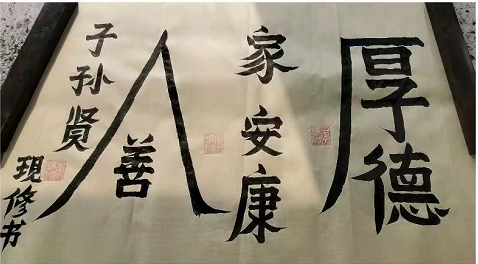 厚德
家安康
人善
子孙贤
現修书